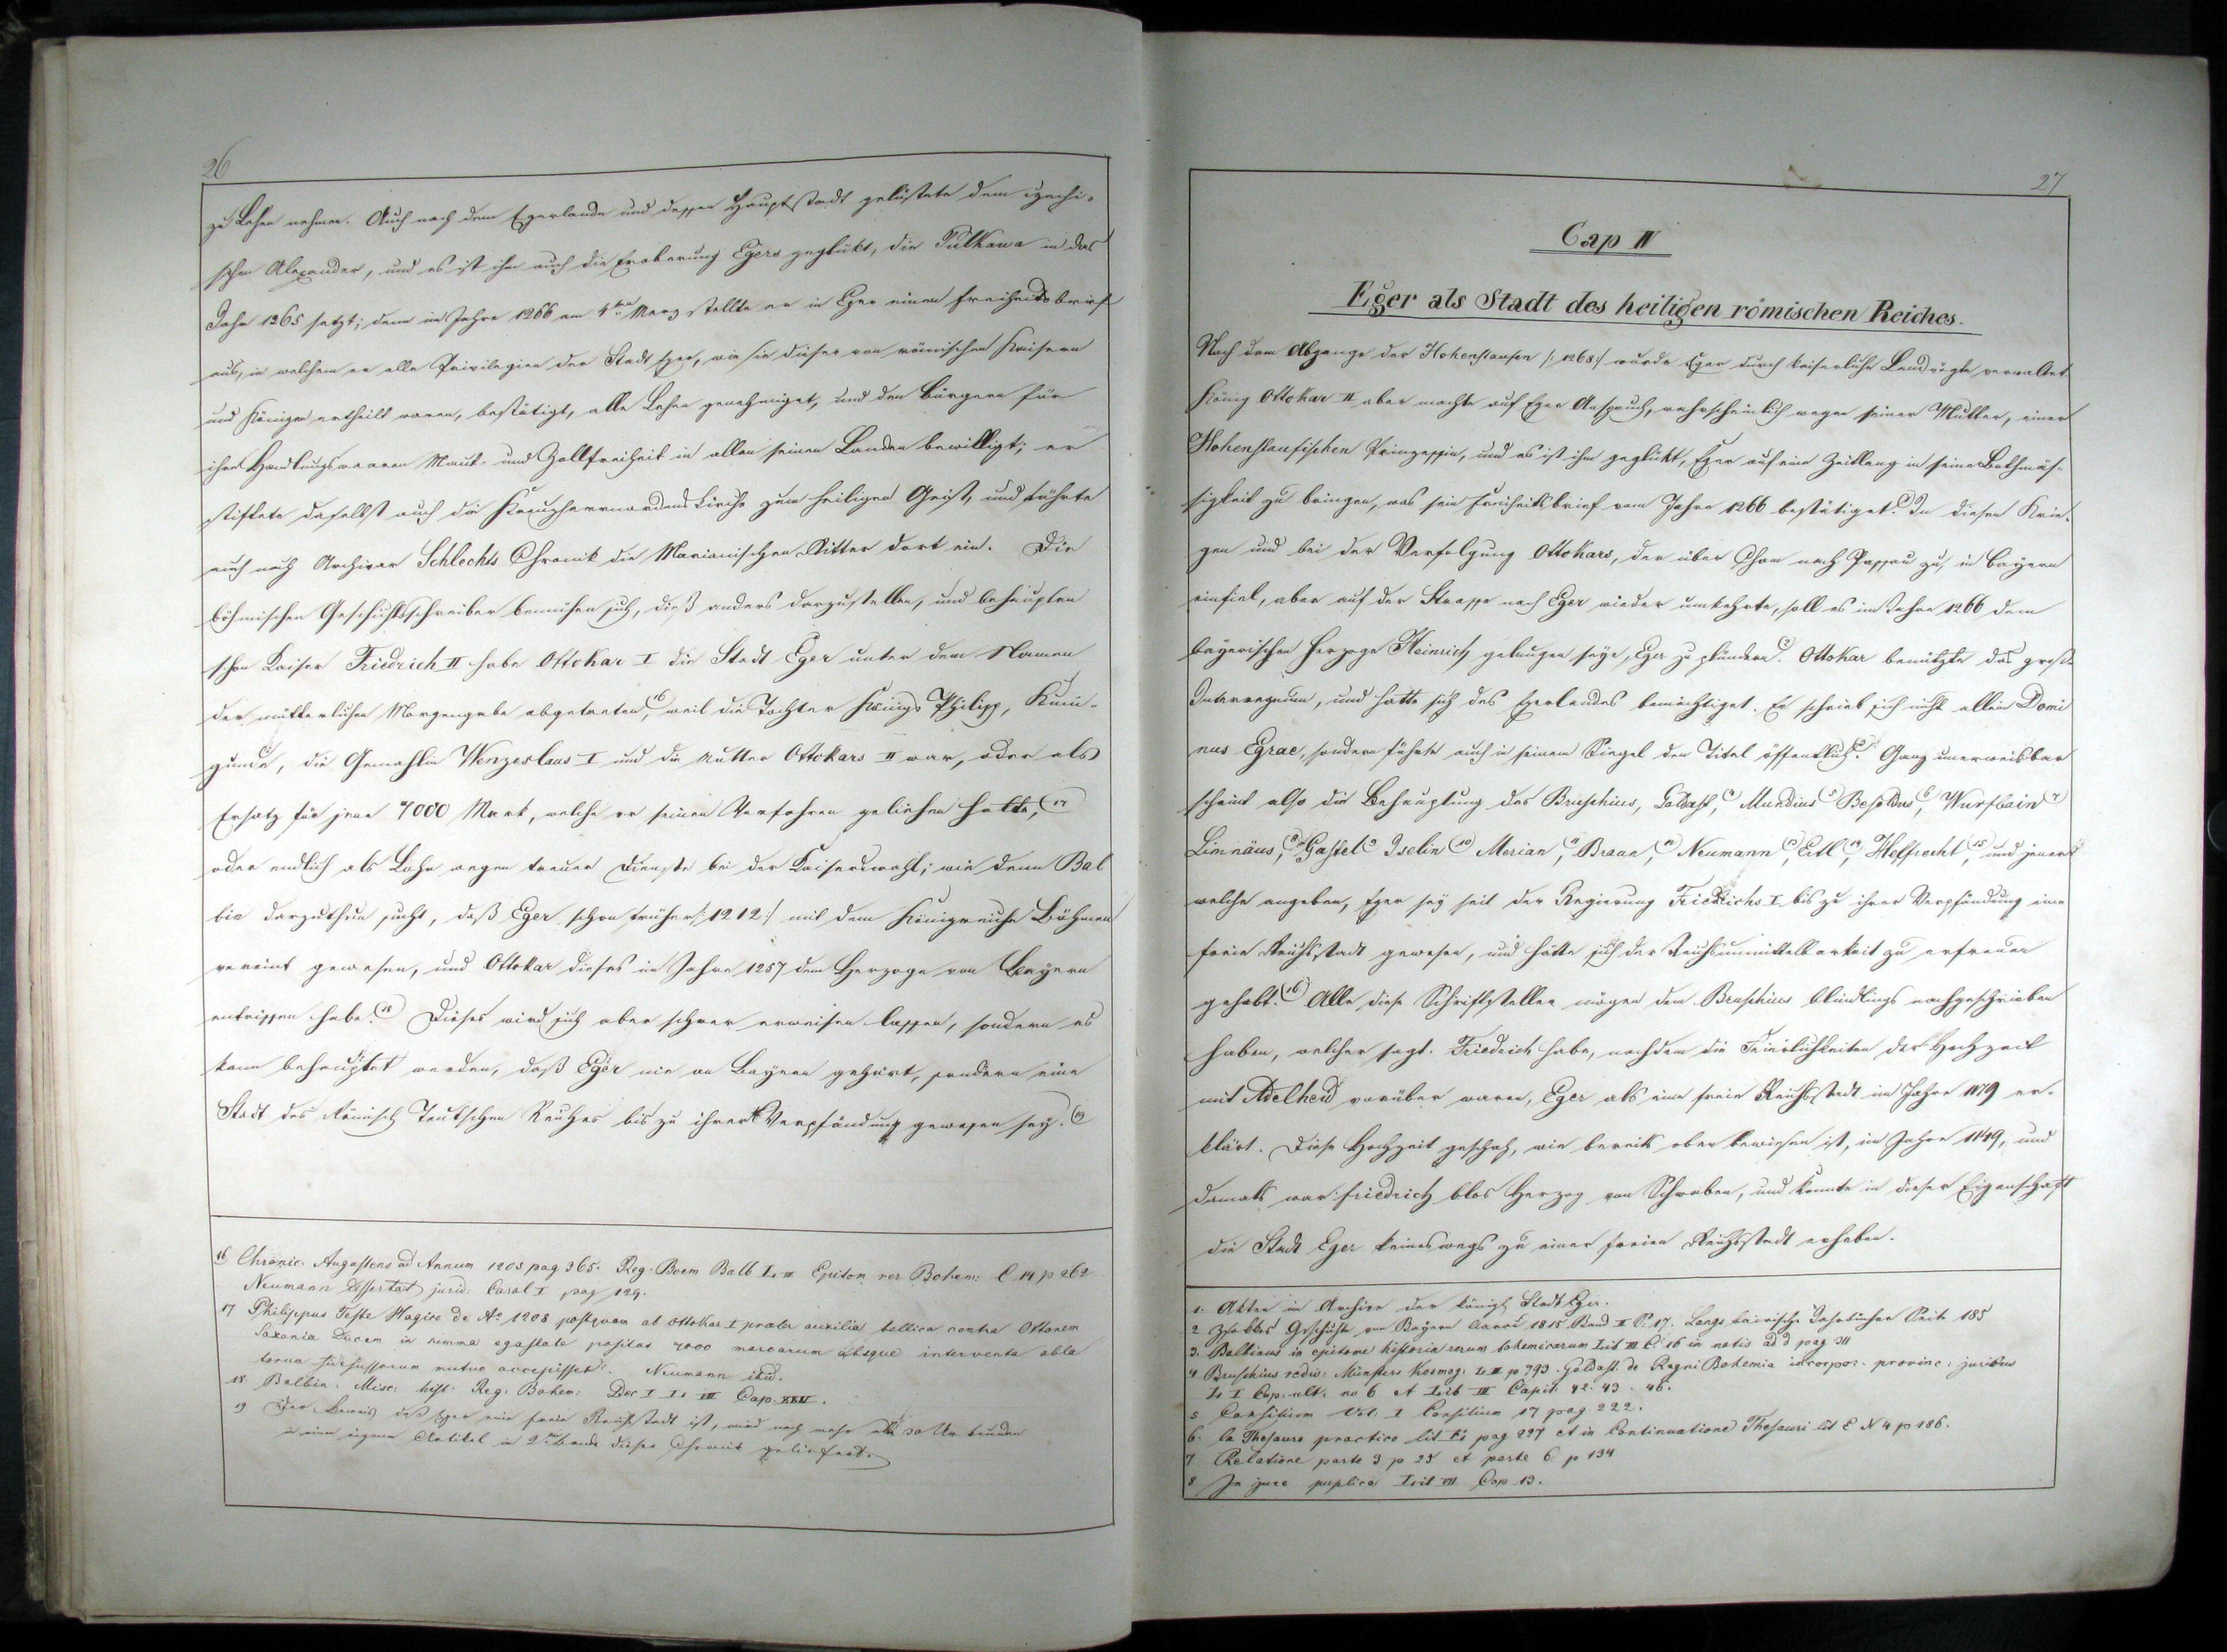 26
zu Lehen nehmen. Auch nach dem Egerlande und dessen Hauptstadt gelüstete dem czechi-
schen Alexander, und es ist ihm auch die Eroberung Egers geglükt, die Pulkawa in das
Jahr 1265 setzt; denn im Jahre 1266 am 4ten Merz stellte er in Eger einen Freiheitsbrief
aus, in welchem er alle Privilegien der Stadt Eger, wie sie dieser von römischen Kaisern
und Königen ertheilt waren, bestätigt, alle Lehen genehmiget, und den Bürgern für
ihre Handlungswaaren Maut- und Zollfreiheit in allen seinen Landen bewilligt; er
stiftete daselbst auch die Kreuzherrnordenskirche zum heiligen Geist, und führte
auch nach Archivar Schlechts Chronik die Marianischen Ritter dort ein. Die
böhmischen Geschichtsschreiber bemühen sich, dieß anders darzustellen, und behaupten
schon Kaiser Friedrich II habe Ottokar I die Stadt Eger unter dem Namen
der mütterlichen Morgengabe abgetreten, (16 weil die Tochter Königs Philipp, Kuni-
gunde, die Gemahlin Wenzeslaus I und die Mutter Ottokars II war, oder als
Ersatz für jene 7000 Mark, welche er seinen Vorfahren geliehen hatte, (17
oder endlich als Lohn wegen treuer Dienste bei der Kaiserwahl; wie denn Bal
bin darzuthun sucht, daß Eger schon früher /: 1212 :/ mit dem Königreiche Böhmen
vereint gewesen, und Ottokar dieses im Jahre 1257 dem Herzoge von Bayern
entrissen habe. (18 Dieses wird sich aber schwer erweisen lassen, sondern es
kann behauptet werden, daß Eger nie an Bayern gehört, sondern eine
Stadt des Römisch Teutschen Reiches bis zu ihrer Verpfändung gewesen sey. (19
16 Chronic. Augustens ad Annum 1203 pag 365. Reg. Boem Balb L. III Epitom rer Bohem: C 14 p 262
Neumann Dissertat jurid: Carol I pag 129.
17 Philippus Teste Hagico de Ao 1208 postquam ab Ottokar I praeter auxilia bellica contra Ottonem
Saxonia Ducem in summa egestate positus 7000 marcarum absque interventa
mutuo accepisset. Neumann ibid.
18 Balbin. Misc: hist. Reg: Bohem: Dec I L. VII Cap. XXII.
19 Der Beweis, daß Eger eine freie Reichsstadt ist, wird noch mehr als 30 Urkunden
in einem eigenen Artikel im 2ten Bande dieser Chronik geliefert.
27
Cap IV
Eger als Stadt des heiligen römischen Reiches.
Nach dem Abgange der Hohenstaufen /: 1268 :/ wurde Eger durch kaiserliche Landvögte verwaltet
König Ottokar II aber machte auf Eger Anspruch, wahrscheinlich wegen seiner Mutter, einer
Hohenstaufischen Prinzessin, und es ist ihm geglükt, Eger auf eine Zeitlang in seine Bothmäs-
sigkeit zu bringen, was sein Freiheitsbrief vom Jahre 1266 bestätiget. (1 In diesen Krie-
gen und bei der Verfolgung Ottokars, der über Cham nach Passau zu, in Bayern
einfiel, aber auf der Strasse nach Eger wieder umkehrte, soll es im Jahre 1266 dem
bayerischen Herzoge Heinrich gelungen seyn, Eger zu plündern. (2 Ottokar benützte das große
Interregnum, und hatte sich des Egerlandes bemächtiget. Er schrieb sich nicht allein Domi
nus Egrae, sondern führte auch in seinem Siegel den Titel öffentlich. (3 Ganz unerweisbar
scheint also die Behauptung des Bruschius, Goldast, (4 Mundius (5 Besoldus, (6 Wurfbain (7
Limnäus, (8 Gastel (9 Iselin (10 Merian, (11 Braun, (12 Neumann (13, Ertl (14, Helfrecht, (15 und jener
welche angeben, Eger sey seit der Regierung Friedrichs I bis zu ihrer Verpfändung eine
freie Reichsstadt gewesen, und hätte sich der Reichsunmittelbarkeit zu erfreuen
gehabt. (16 Alle diese Schriftsteller mögen dem Bruschius blindlings nachgeschrieben
haben, welcher sagt: Friedrich habe, nachdem die Feierlichkeiten der Hochzeit
mit Adelheid vorüber waren, Eger als eine freie Reichsstadt im Jahre 1179 er-
klärt. Diese Hochzeit geschah, wie bereits oben bewiesen ist, im Jahre 1149, und
damals war Friedrich blos Herzog von Schwaben, und konnte in dieser Eigenschaft
die Stadt Eger keineswegs zu einer freien Reichsstadt erheben.
1. Akten im Archive der königl Stadt Eger.
2 Zschokkes Geschichte von Bayern Aarau 1815 Band II S. 17. Langs bairische Jahrbücher Seite 185
3. Balbinus in epitome historia rerum bohemicarum Lib III C. 16 in notis ad d pag 311
4 Bruschius rediv: Münsters Kosmog. L III p 793. Goldast. de Regni Bohemia incorpor. provinc: juribus
L I Cap. ult. no 6 et Lib III Capit. 42. 43. 46.
5 Consilium Vol: I Consilium 17 pag 222.
6. In Thesauro practico lit E pag 227 et in Continuatione Thesauri lit E N 4 p 186.
7 Relatione parte 3 p 25 et parte 6 p 134
8 In jure puplico Lib VII Cap 13.